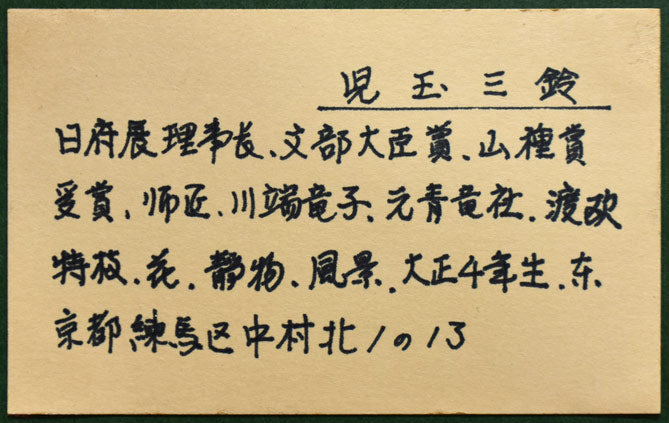 児玉三鈴
日府展理事長、文部大臣賞、山種賞
受賞、师匠、川端竜子、元青竜社、渡欧
特枝、花、静物、風景、大正4年生、东
京都練馬区中村北1の13